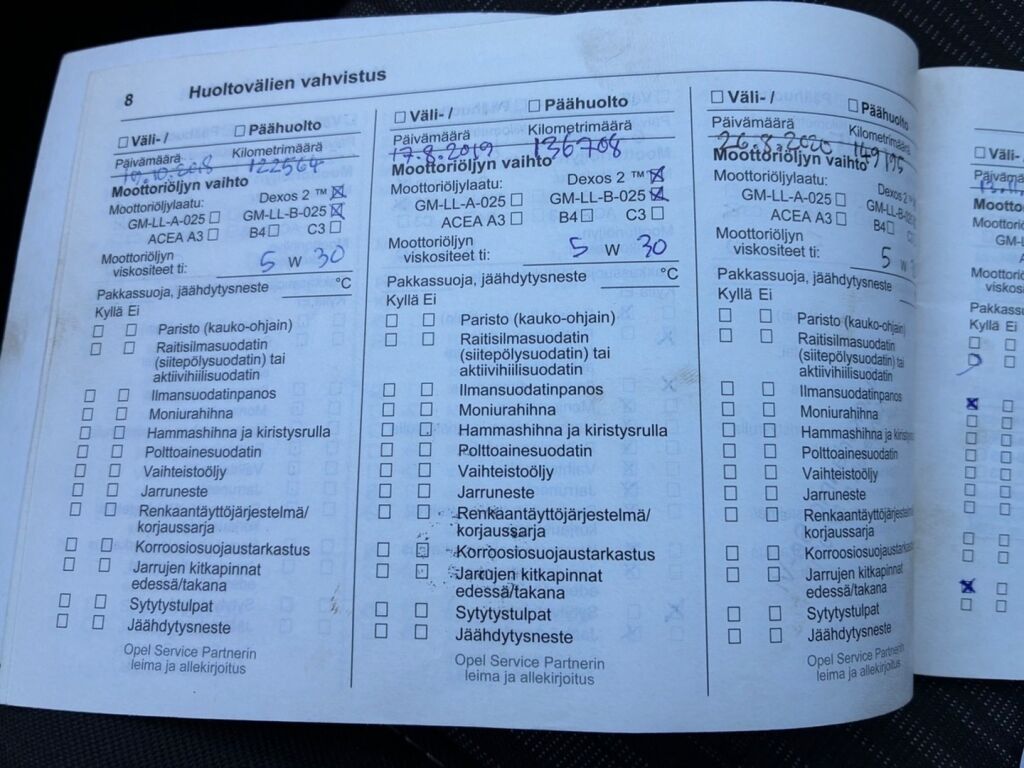 8 Huoltovälien vahvistus
☐ Väli- / ☐ Päähuolto
Päivämäärä Kilometrimäärä
122564
Moottoriöljyn vaihto
Moottoriöljylaatu: Dexos 2 ™ ☒
GM-LL-A-025 ☐ GM-LL-B-025 ☒
ACEA A3 ☐ B4 ☐ C3 ☐
Moottoriöljyn
viskositeet ti: 5 W 30
Pakkassuoja, jäähdytysneste °C
Kyllä Ei
☐ ☐ Paristo (kauko-ohjain)
☐ ☐ Raitisilmasuodatin
(siitepölysuodatin) tai
aktiivihiilisuodatin
☐ ☐ Ilmansuodatinpanos
☐ ☐ Moniurahihna
☐ ☐ Hammashihna ja kiristysrulla
☐ ☐ Polttoainesuodatin
☐ ☐ Vaihteistoöljy
☐ ☐ Jarruneste
☐ ☐ Renkaantäyttöjärjestelmä/
korjaussarja
☐ ☐ Korroosiosuojaustarkastus
☐ ☐ Jarrujen kitkapinnat
edessä/takana
☐ ☐ Sytytystulpat
☐ ☐ Jäähdytysneste
Opel Service Partnerin
leima ja allekirjoitus
☐ Väli- / ☐ Päähuolto
Päivämäärä Kilometrimäärä
17.8.2019 136708
Moottoriöljyn vaihto
Moottoriöljylaatu: Dexos 2 ™ ☒
GM-LL-A-025 ☐ GM-LL-B-025 ☒
ACEA A3 ☐ B4 ☐ C3 ☐
Moottoriöljyn
viskositeet ti: 5 W 30
Pakkassuoja, jäähdytysneste °C
Kyllä Ei
☐ ☐ Paristo (kauko-ohjain)
☐ ☐ Raitisilmasuodatin
(siitepölysuodatin) tai
aktiivihiilisuodatin
☐ ☐ Ilmansuodatinpanos
☐ ☐ Moniurahihna
☐ ☐ Hammashihna ja kiristysrulla
☐ ☐ Polttoainesuodatin
☐ ☐ Vaihteistoöljy
☐ ☐ Jarruneste
☐ ☐ Renkaantäyttöjärjestelmä/
korjaussarja
☐ ☐ Korroosiosuojaustarkastus
☐ ☐ Jarrujen kitkapinnat
edessä/takana
☐ ☐ Sytytystulpat
☐ ☐ Jäähdytysneste
Opel Service Partnerin
leima ja allekirjoitus
☐ Väli- / ☐ Päähuolto
Päivämäärä Kilometrimäärä
26.8.2020 149195
Moottoriöljyn vaihto
Moottoriöljylaatu: Dexos 2 ™
GM-LL-A-025 ☐ GM-LL-B-025
ACEA A3 ☐ B4 ☐ C3
Moottoriöljyn
viskositeet ti: 5 W
Pakkassuoja, jäähdytysneste
Kyllä Ei
☐ ☐ Paristo (kauko-ohjain)
☐ ☐ Raitisilmasuodatin
(siitepölysuodatin) tai
aktiivihiilisuodatin
☐ ☐ Ilmansuodatinpanos
☐ ☐ Moniurahihna
☐ ☐ Hammashihna ja kiristys
☐ ☐ Polttoainesuodatin
☐ ☐ Vaihteistoöljy
☐ ☐ Jarruneste
☐ ☐ Renkaantäyttöjärjestelmä/
korjaussarja
☐ ☐ Korroosiosuojaustarka
☐ ☐ Jarrujen kitkapinnat
edessä/takana
☐ ☐ Sytytystulpat
☐ ☐ Jäähdytysneste
Opel Service Partnerin
leima ja allekirjoitus
☐ Väli-
Päivämä
Mootto
Moottori
GM-L
Moottoriö
viskos
Pakkas
Kyllä Ei